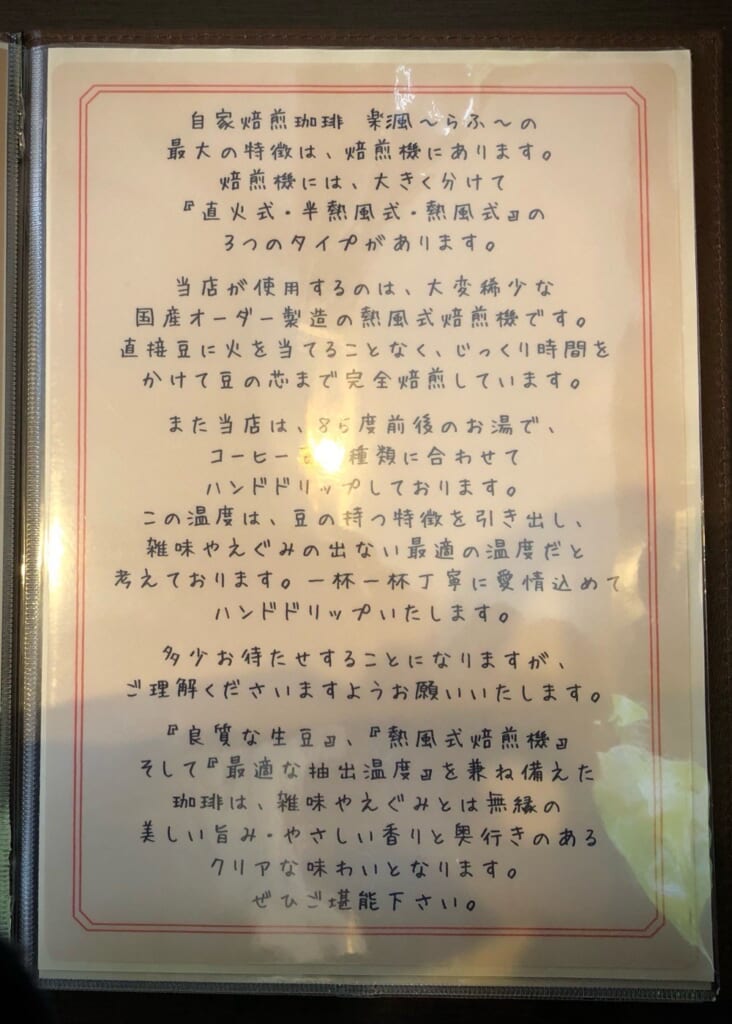 自家焙煎珈琲 楽風～らふ～の
最大の特徴は、焙煎機にあります。
焙煎機には、大きく分けて
『直火式・半熱風式・熱風式』の
3つのタイプがあります。
当店が使用するのは、大変稀少な
国産オーダー製造の熱風式焙煎機です。
直接豆に火を当てることなく、じっくり時間を
かけて豆の芯まで完全焙煎しています。
また当店は、85度前後のお湯で、
コーヒー 種類に合わせて
ハンドドリップしております。
この温度は、豆の持つ特徴を引き出し、
雑味やえぐみの出ない最適の温度だと
考えております。一杯一杯丁寧に愛情込めて
ハンドドリップいたします。
多少お待たせすることになりますが、
ご理解くださいますようお願いいたします。
『良質な生豆』、『熱風式焙煎機』
そして『最適な抽出温度』を兼ね備えた
珈琲は、雑味やえぐみとは無縁の
美しい旨み・やさしい香りと奥行きのある
クリアな味わいとなります。
ぜひご堪能下さい。